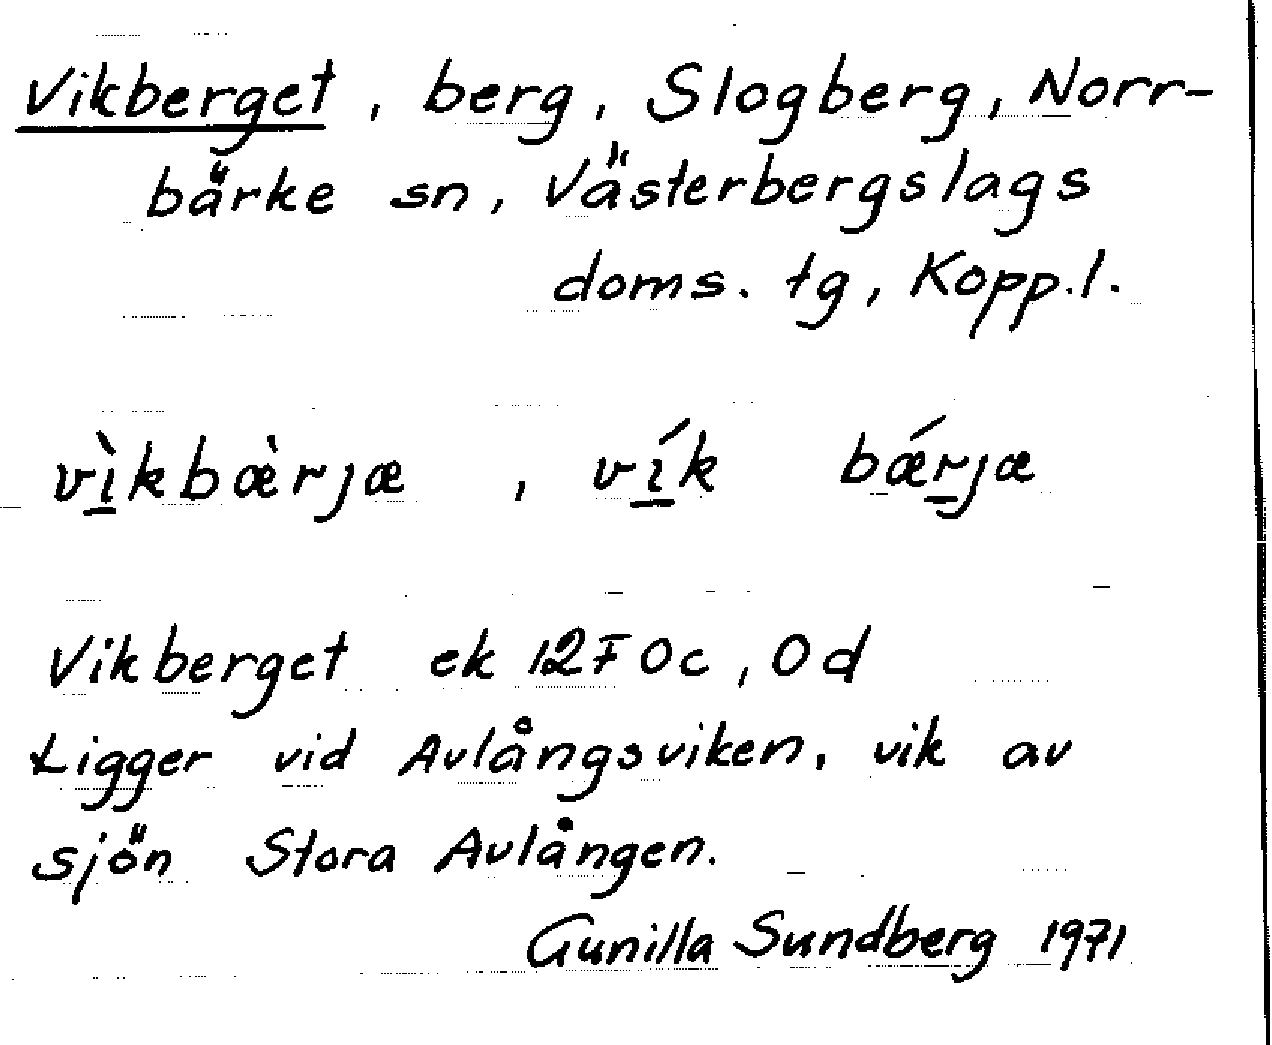 Vikberget, berg, Slogberg, Norr-
bärke sn, Västerbergslags
doms. tg, Kopp.l.
vì̲kbæ̀rjæ, ví̲k bǽr̲jæ
Vikberget ek 12F 0c, 0d
Ligger vid Avlångsviken, vik av
sjön Stora Avlången.
Gunilla Sundberg 1971